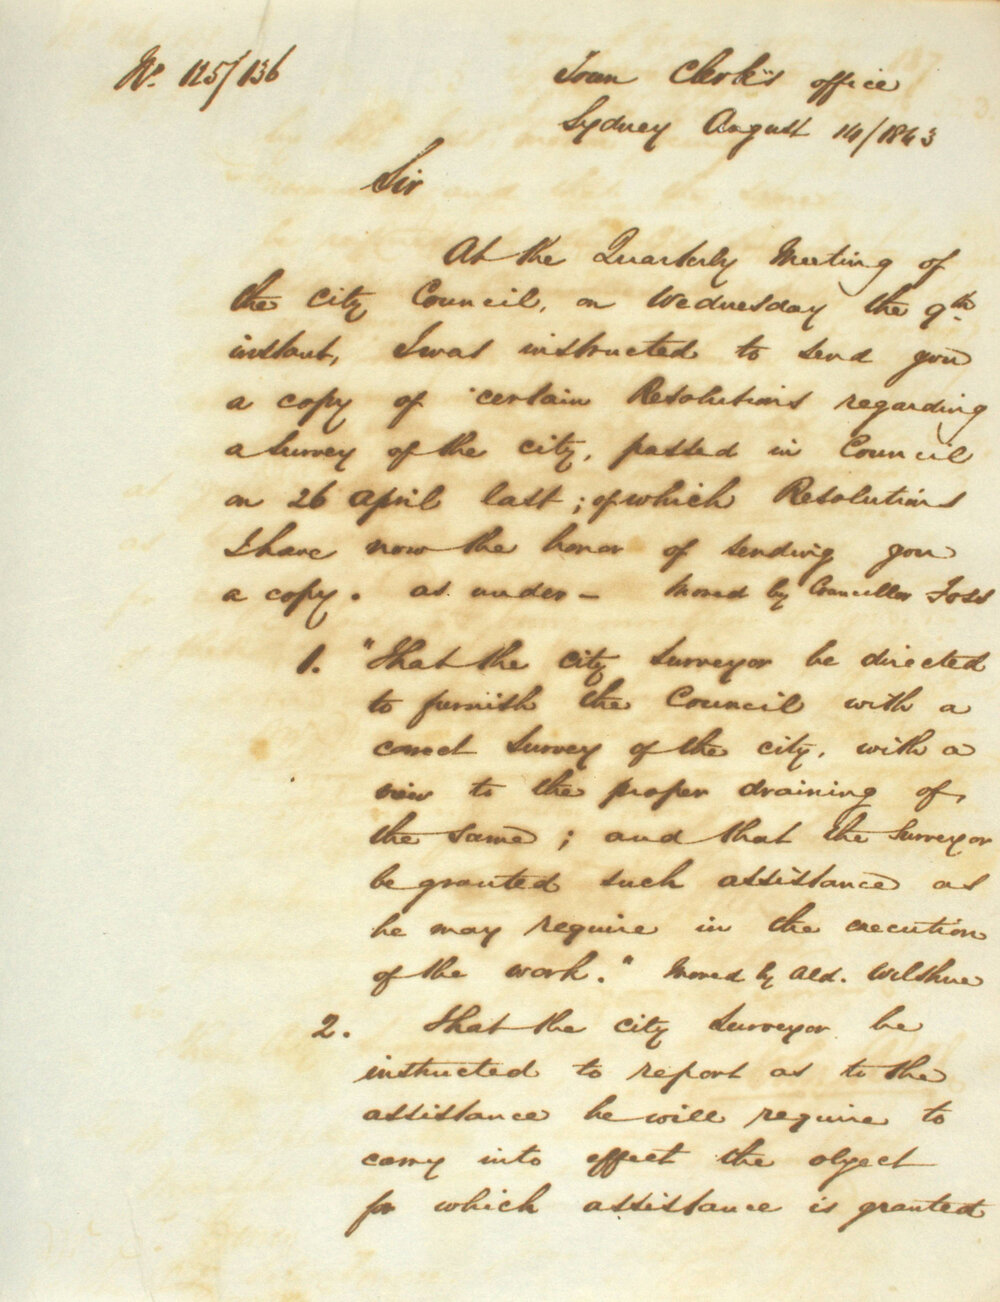 No. 125/136
Town Clerk's office
Sydney August 14/1843
Sir
At the Quarterly Meeting of
the City Council, on Wednesday the 9th
instant, I was instructed to send you
a copy of certain Resolutions regarding
a Survey of the city, passed in Council
on 26 April last; of which Resolutions
I have now the honor of sending you
a copy. as under - Moved by Councillor Foss
1. "That the city Surveyor be directed
to furnish the Council with a
correct Survey of the city, with a
view to the proper draining of
the same; and that the Surveyor
be granted such assistance as
he may require in the execution
of the work." Moved by Ald. Wilshire
2. That the city Surveyor be
instructed to report as to the
assistance he will require to
carry into effect the object
for which assistance is granted